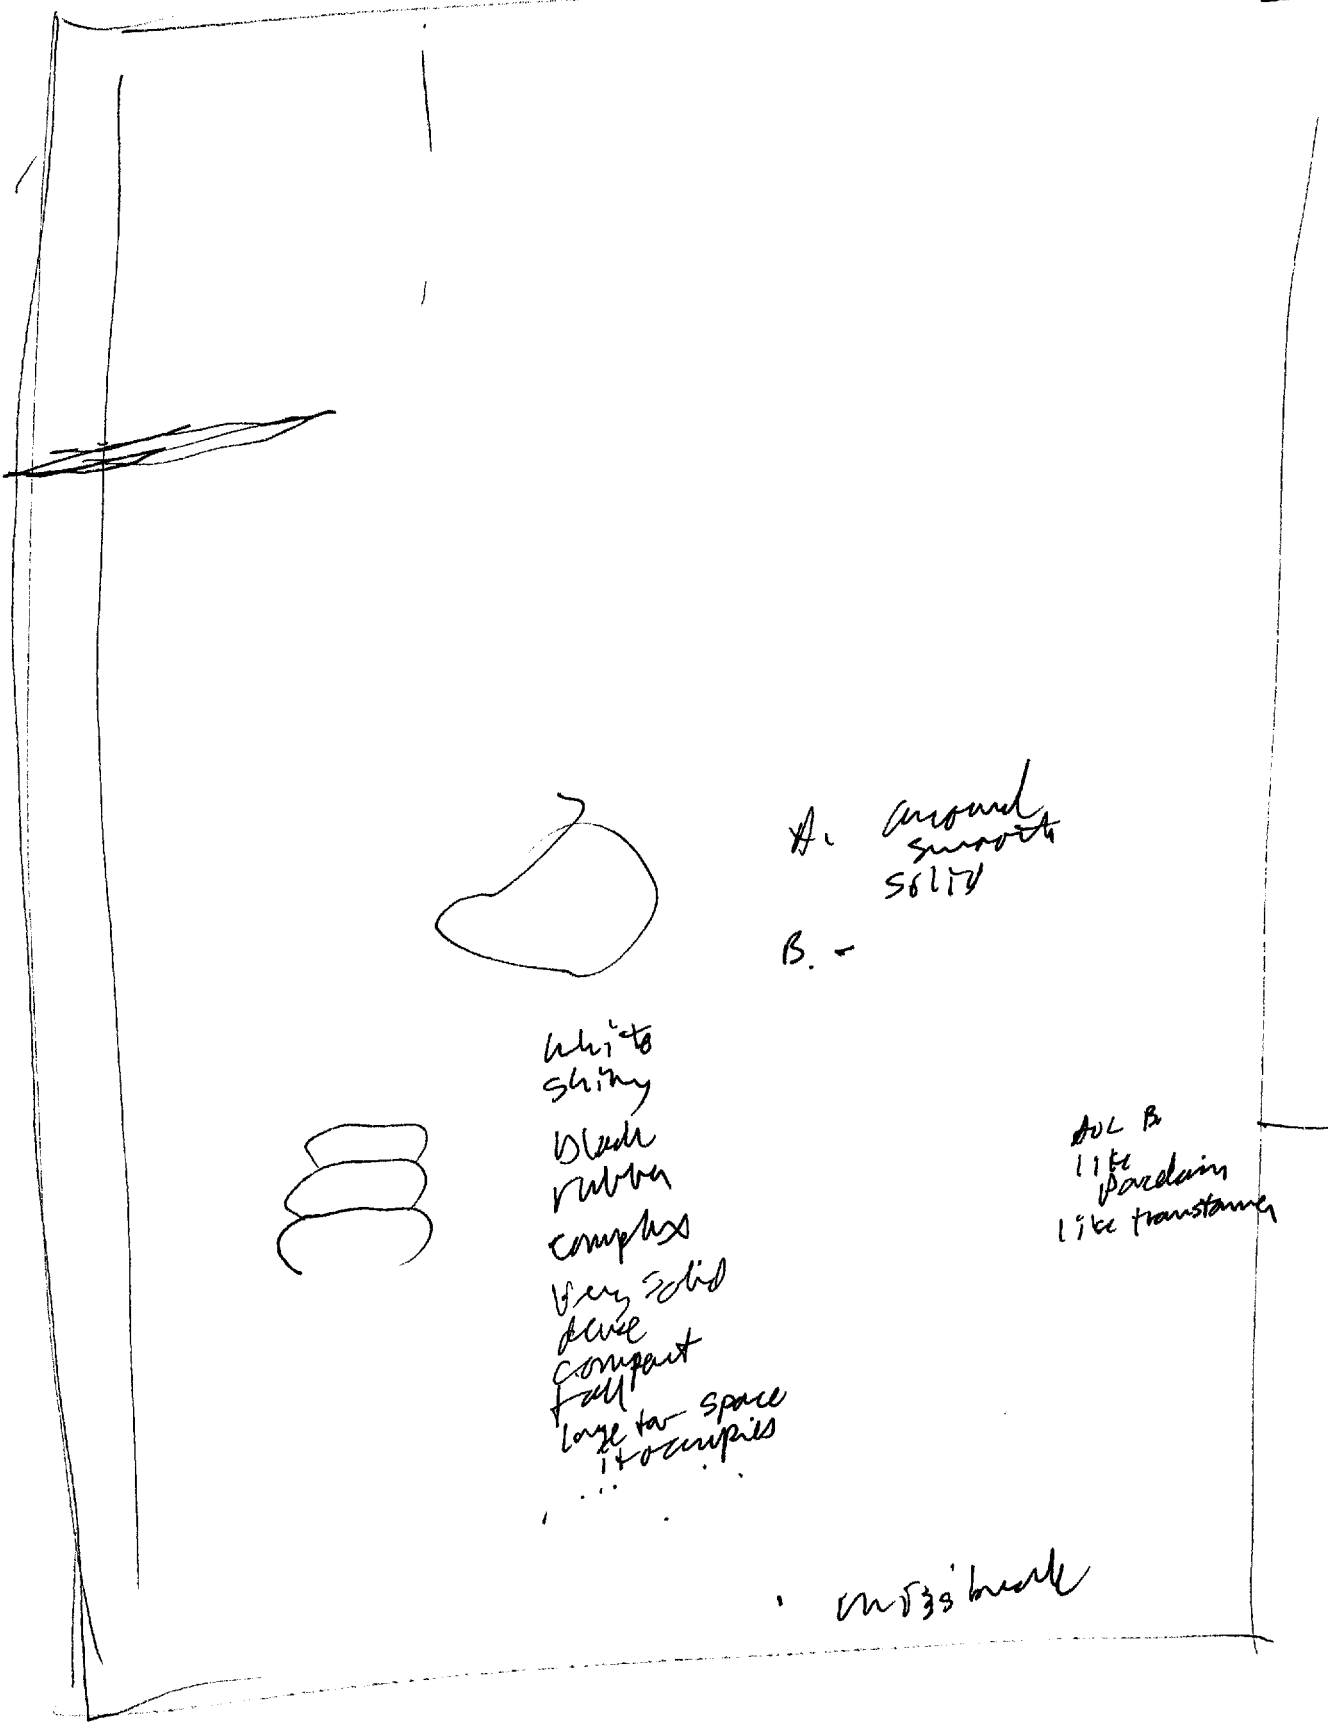 A. around
smooth
solid
B. -
white
shiny
black
rubber
complex
very solid
dense
compact
tall
large for space
it occupies
AOL B.
like
porcelain
like transformer
miss break